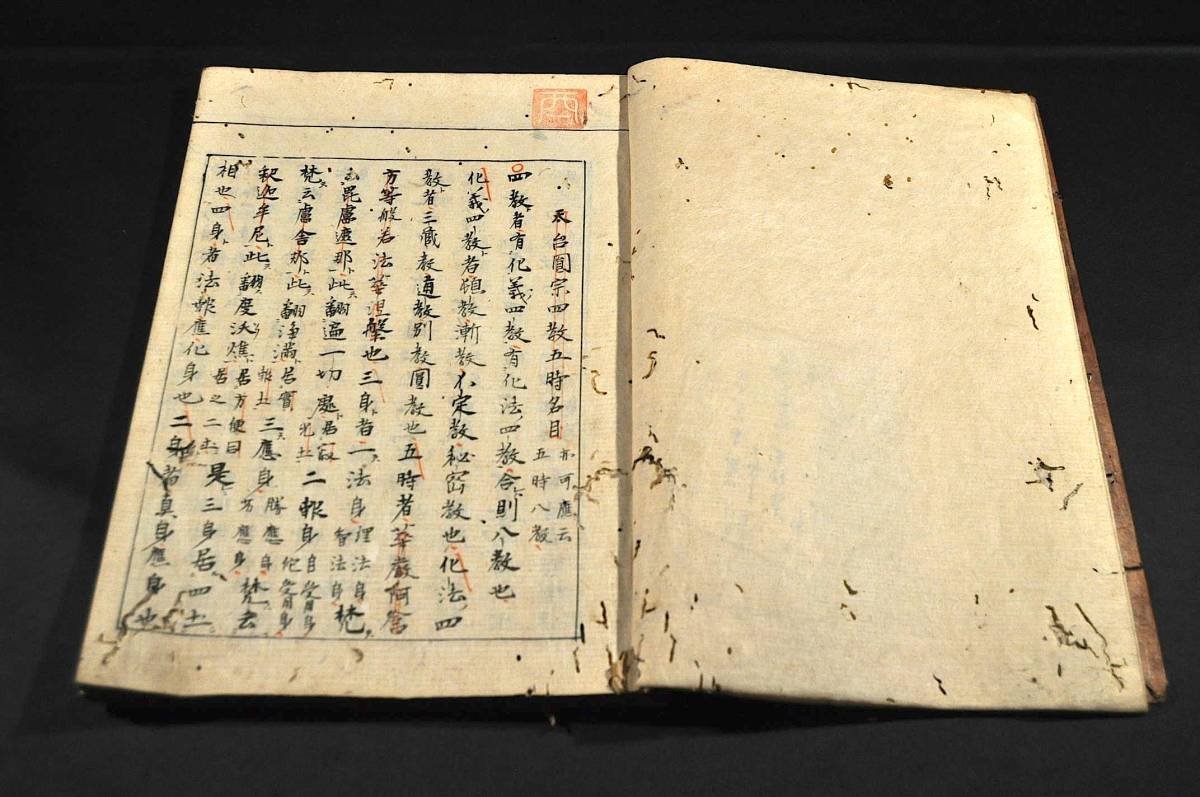 天台圓宗四教五時名目 亦可應云五時八教
四教者有化義四教有化法四教合則八教也
化義四教者頓教漸教不定教秘密教也化法四
教者三藏教通教別教圓教也五時者華嚴阿含
方等般若法華涅槃也三身者一法身理法身智法身梵
云毘盧遮那此翻遍一切處居寂光土二報身自受用身他受用身
梵云盧舍那此翻淨滿居實報土三應身勝應身劣應身梵云
釈迦牟尼此翻度沃焦居方便同居之二土是三身居四土
相也四身者法報應化身也二身者真身應身也